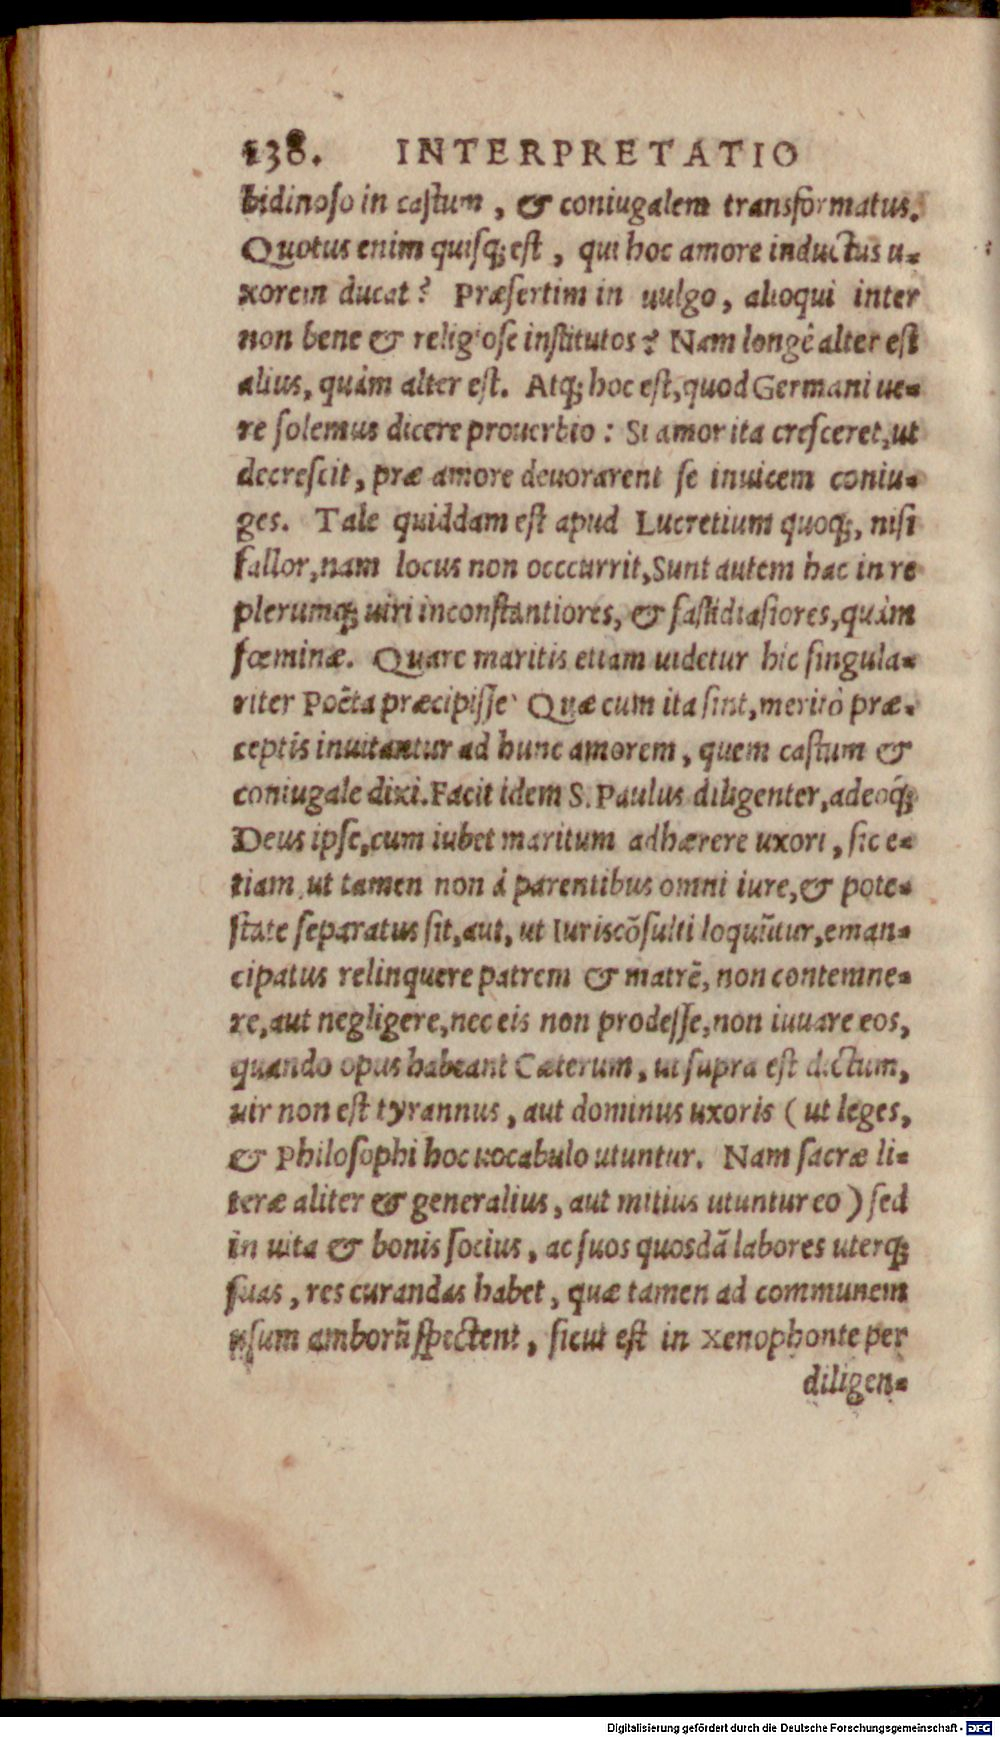 138. INTERPRETATIO
bidinoso in castum, & coniugalem transformatus.
Quotus enim quisq; est, qui hoc amore inductus u-
xorem ducat? Præsertim in uulgo, alioqui inter
non bene & religiose institutos? Nam longè alter est
alius, quàm alter est. Atq; hoc est, quod Germani ue-
re solemus dicere prouerbio: Si amor ita cresceret, ut
decrescit, præ amore deuorarent se inuicem coniu-
ges. Tale quiddam est apud Lucretium quoq;, nisi
fallor, nam locus non occcurrit, Sunt autem hac in re
plerumq; uiri inconstantiores, & fastidiasiores, quàm
fœminæ. Quare maritis etiam uidetur hic singula-
riter Poëta præcipisse Quæ cum ita sint, meritò præ-
ceptis inuitantur ad hunc amorem, quem castum &
coniugale dixi. Facit idem S. Paulus diligenter, adeoq́;
Deus ipse, cum iubet maritum adhærere uxori, sic e-
tiam, ut tamen non à parentibus omni iure, & pote-
state separatus sit, aut, ut Iuriscõsulti loquũtur, eman-
cipatus relinquere patrem & matrẽ, non contemne-
re, aut negligere, nec eis non prodesse, non iuuare eos,
quando opus habeant Cæterum, ut supra est dictum,
uir non est tyrannus, aut dominus uxoris (ut leges,
& Philosophi hoc uocabulo utuntur. Nam sacræ li-
teræ aliter & generalius, aut mitius utuntur eo) sed
in uita & bonis socius, ac suos quosdã labores uterq;
suas, res curandas habet, quæ tamen ad communem
usum amborũ spectent, sicut est in Xenophonte per
diligen-
Digitalisierung gefördert durch die Deutsche Forschungsgemeinschaft - DFG